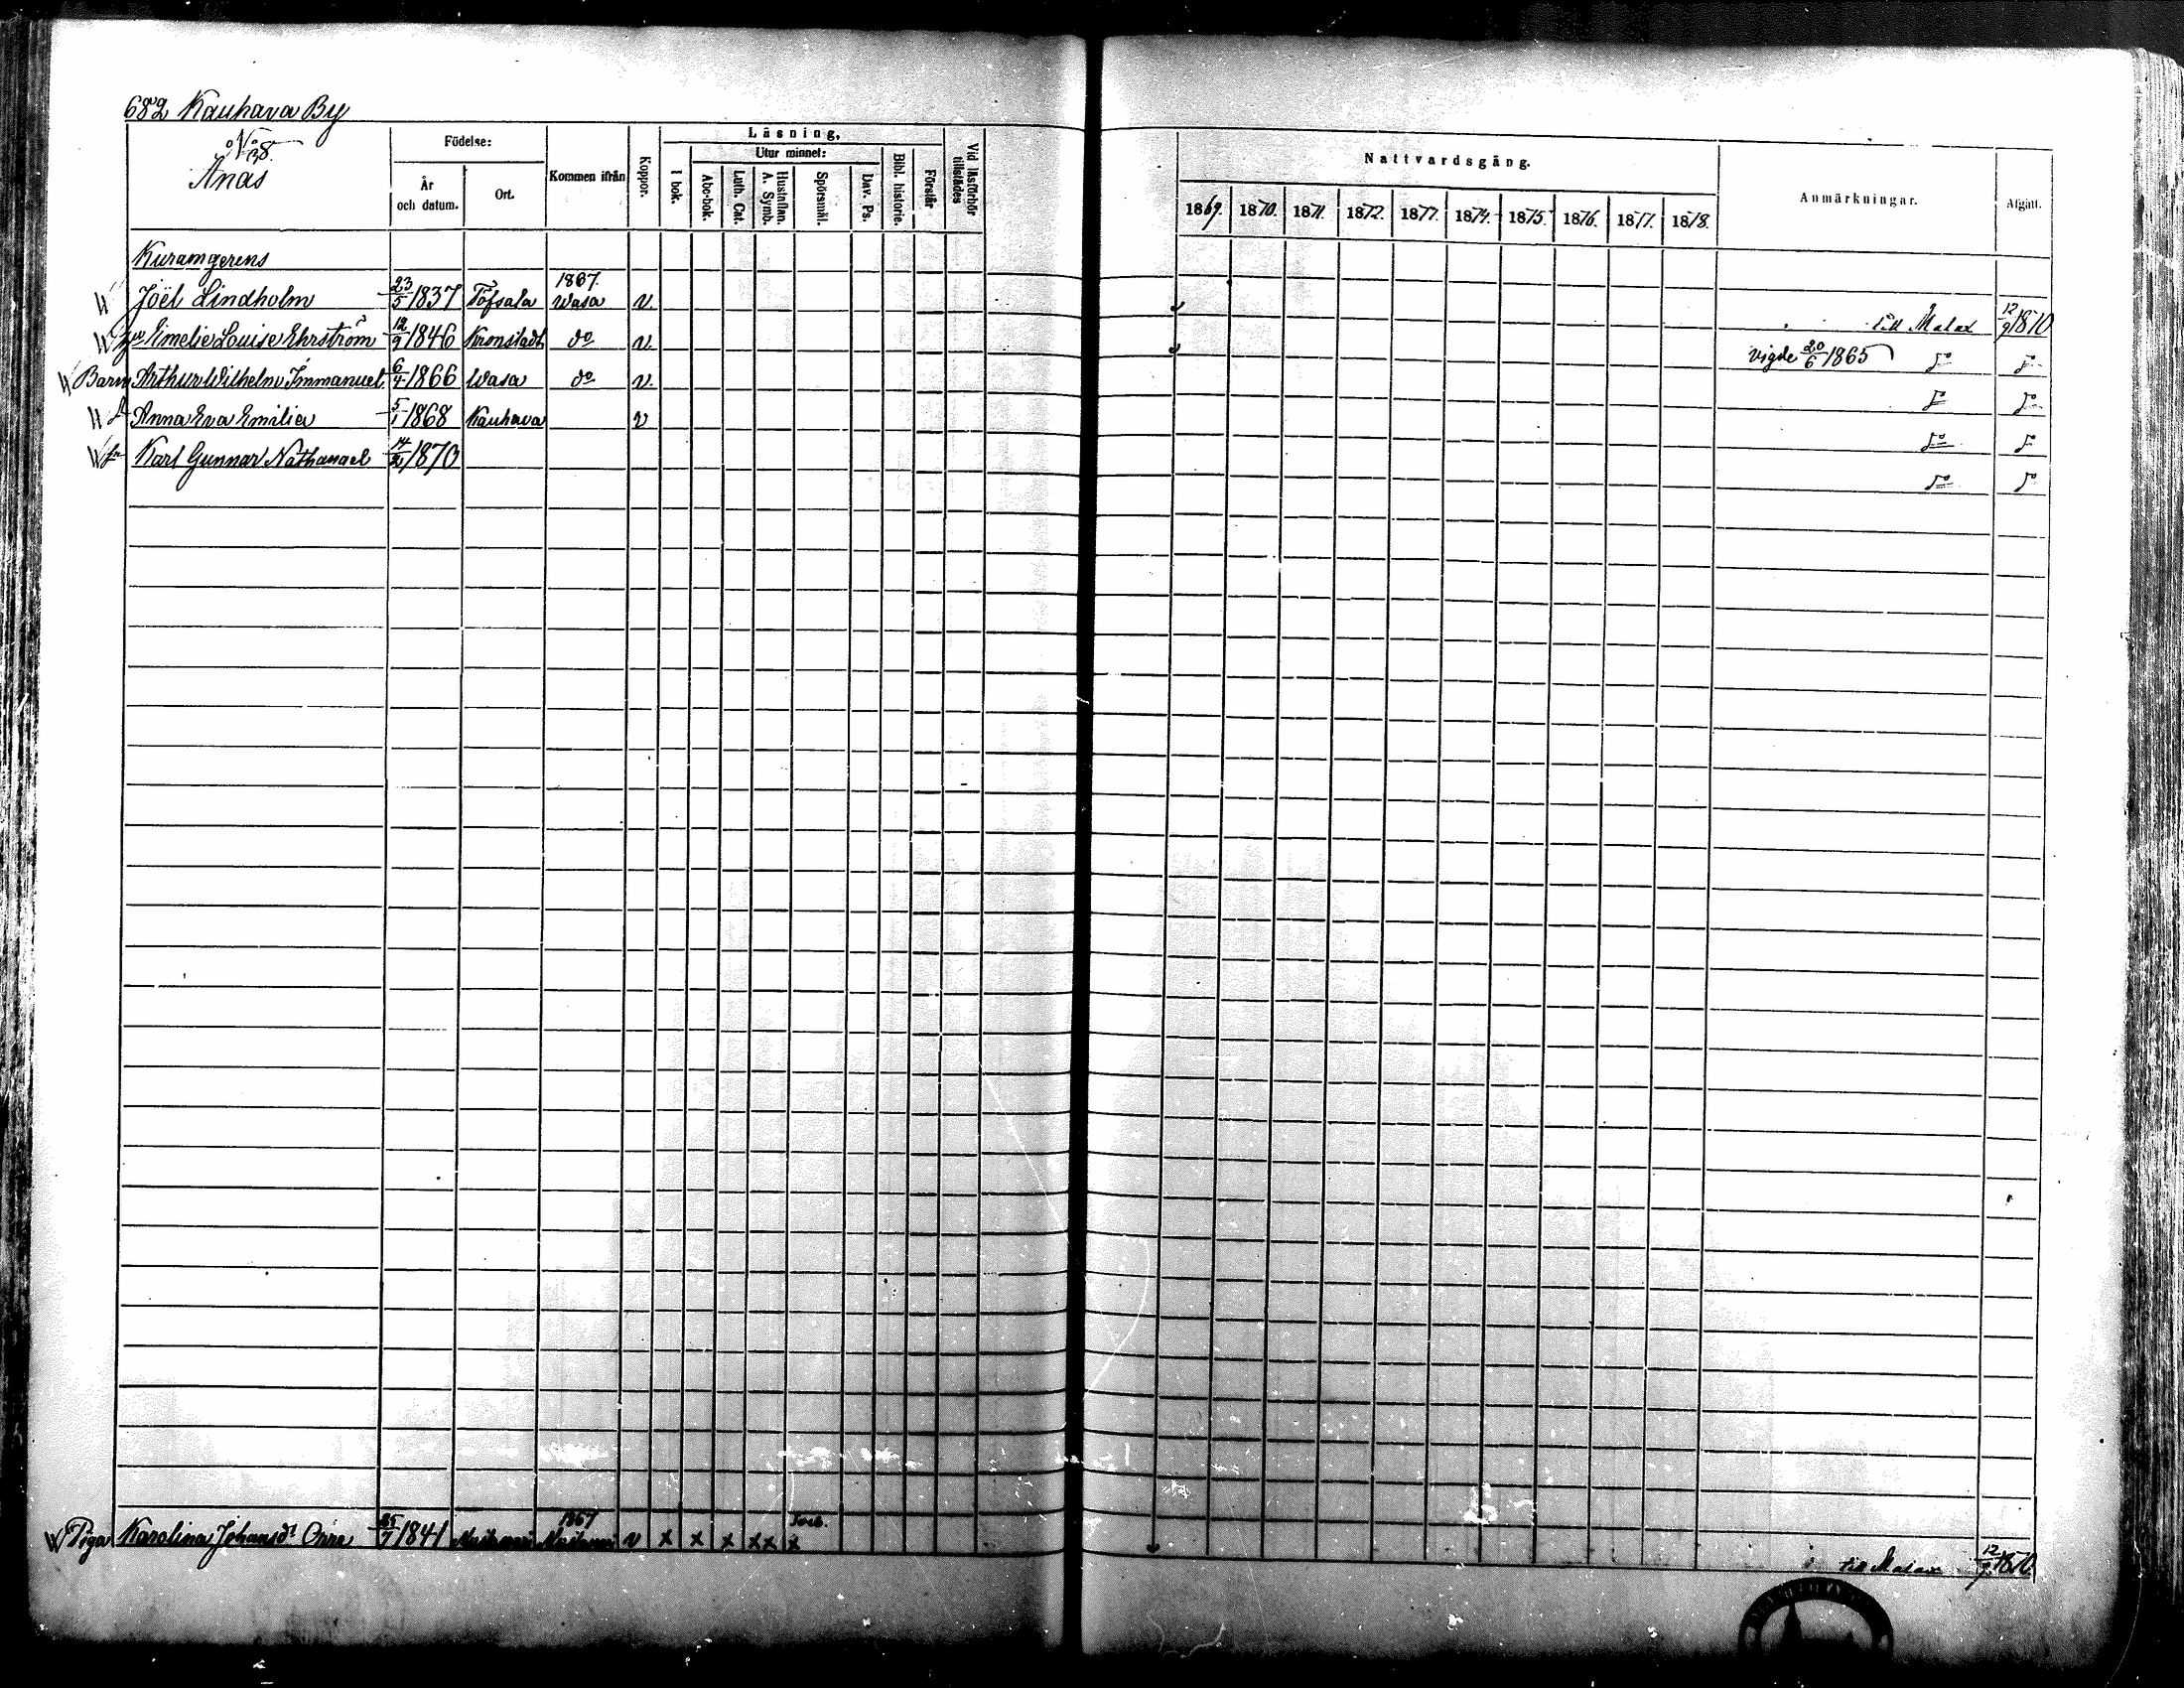 682 Kauhava By
No 38.
Anas
Födelse:
År och datum.
Ort.
Kommen ifrån
Koppor.
Läsning,
I bok.
Utur minnet:
Abc-bok.
Luth. Cat.
Hustaflan. A. Symb.
Spörsmål.
Dav. Ps.
Bibl. historie.
Förstår
Vid läsförhör tillstädes
Nattvardsgång.
1869. 1870. 1871. 1872. 1877. 1874. 1875. 1876. 1877. 1878.
Anmärkningar.
Afgått.
Joël Lindholm 23/5 1837 Töfsala 1867. Wasa v. till Malax 12/9 1870
Emelie Louise Ehrström 12/9 1846 Kronstadt do v. vigde 20/6 1865 do do
Barn Arthur Wilhelm Immanuel 6/4 1866 Wasa do v. do do
Anna Eva Emilia 5/1 1868 Kauhava v do do
Karl Gunnar Nathanael 14/2 1870 do do
Piga Karolina Johansdr 25/7 1841 1867 v x x x xx x till Malax 12/9 1870.